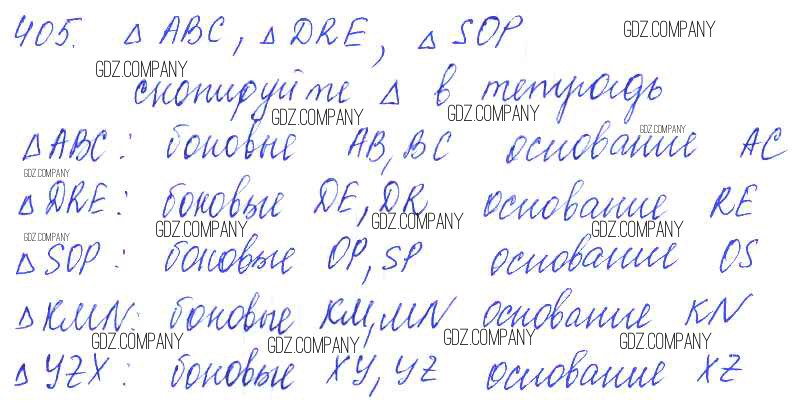 405. Δ ABC, Δ DRE, Δ SOP
GDZ.COMPANY
GDZ.COMPANY
скопируйте Δ в тетрадь
GDZ.COMPANY GDZ.COMPANY
GDZ.COMPANY
Δ ABC: боковые AB, BC основание AC
GDZ.COMPANY
Δ DRE: боковые DE, DR основание RE
GDZ.COMPANY GDZ.COMPANY GDZ.COMPANY GDZ.COMPANY
Δ SOP: боковые OP, SP основание OS
Δ KMN: боковые KM, MN основание KN
GDZ.COMPANY GDZ.COMPANY GDZ.COMPANY GDZ.COMPANY
Δ YZX: боковые XY, YZ основание XZ